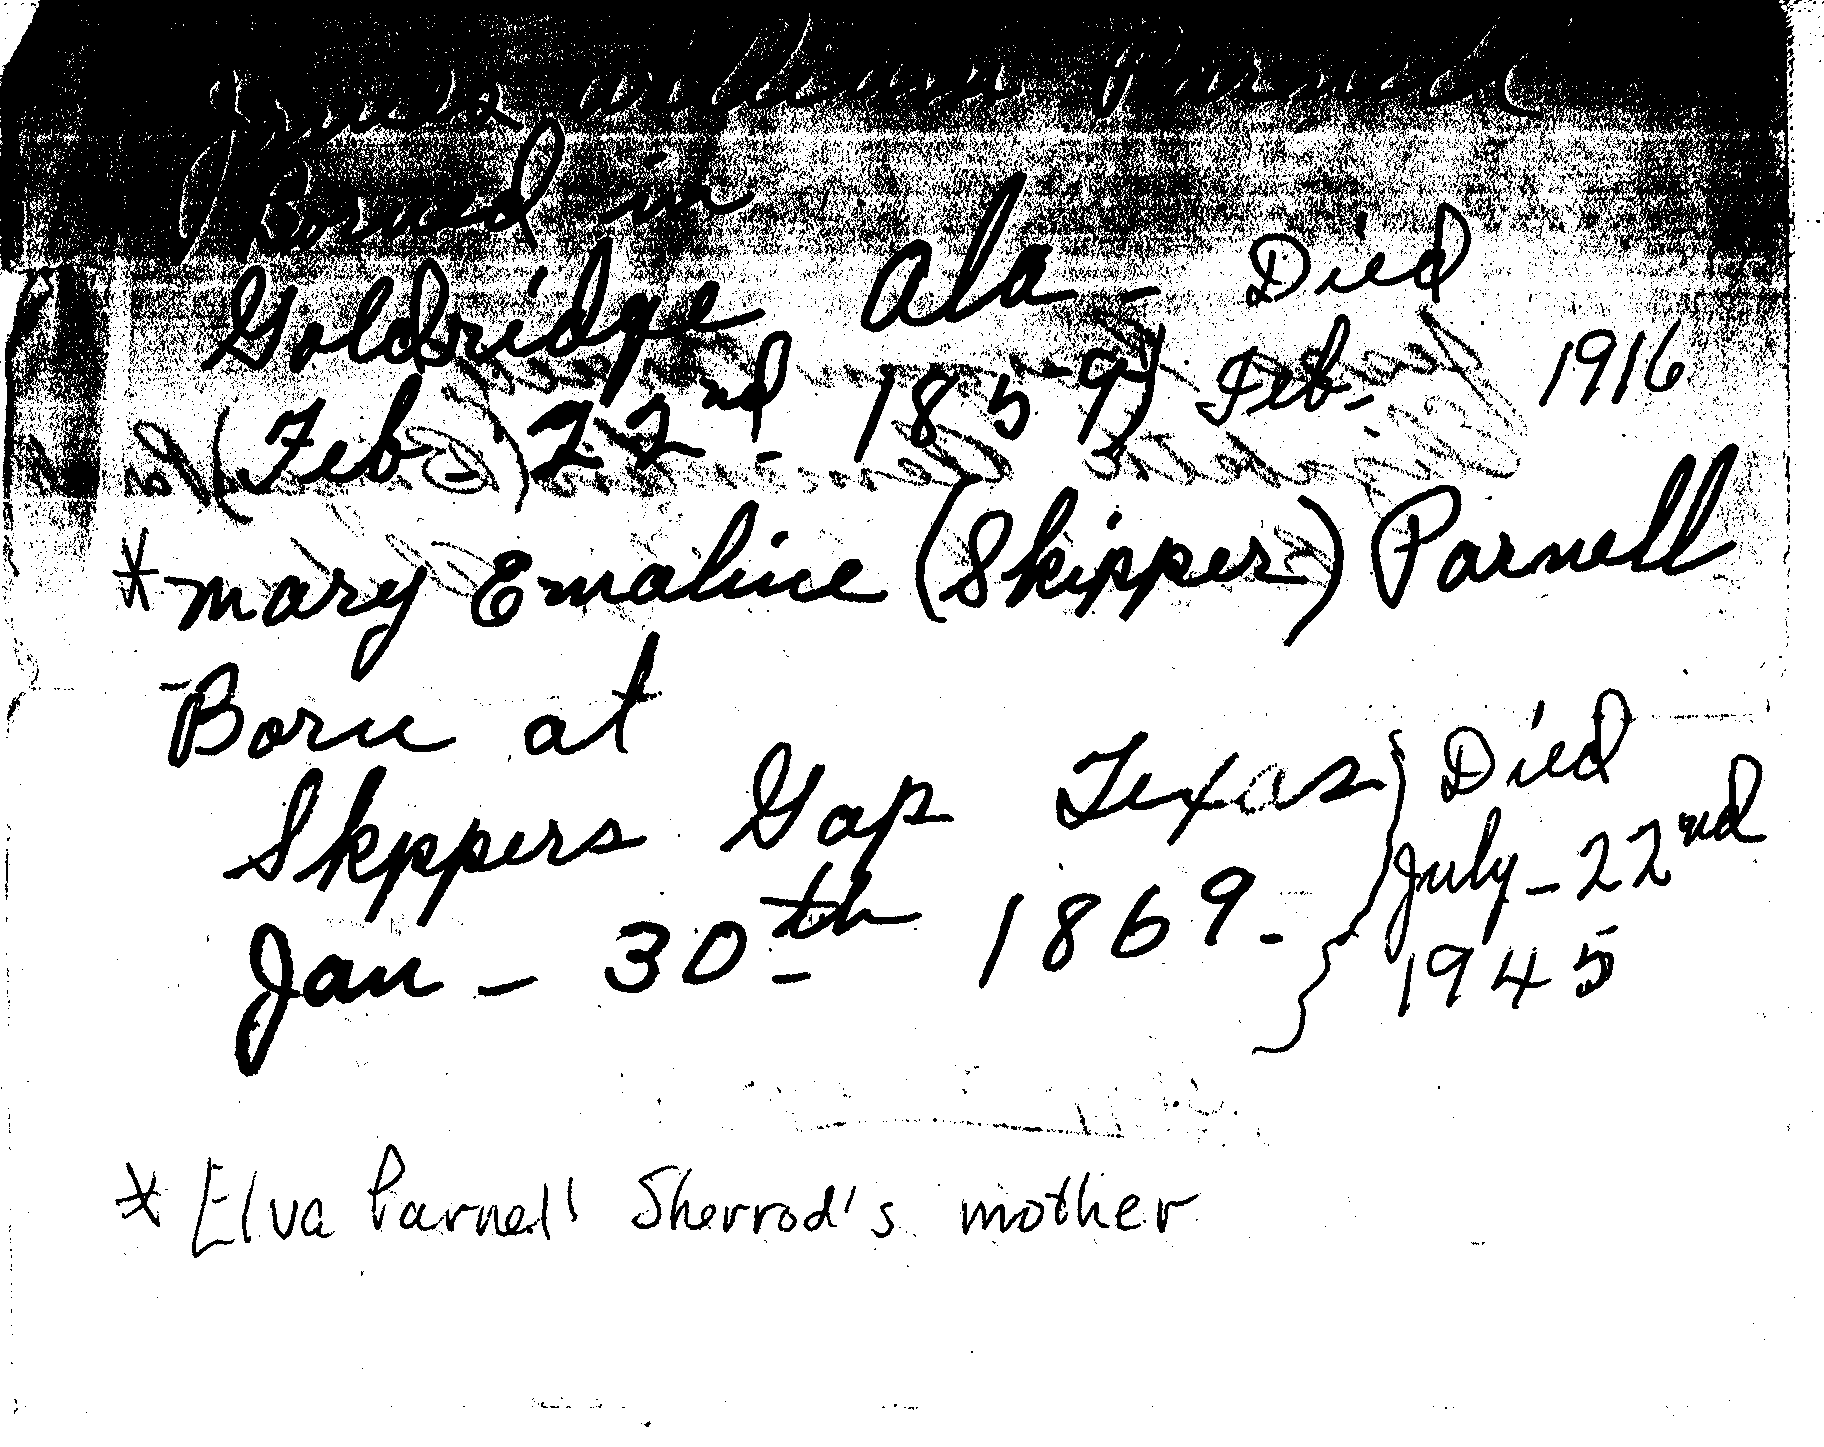 James William Parnell
Borned in
Goldridge Ala - Died
(Feb) 22nd 1859) Feb- 1916
*Mary Emaline (Skipper) Parnell
Born at
Skppers Gap Texas } Died
Jan - 30th 1869 - July - 22nd
1945
* Elva Parnell Sherrod's mother